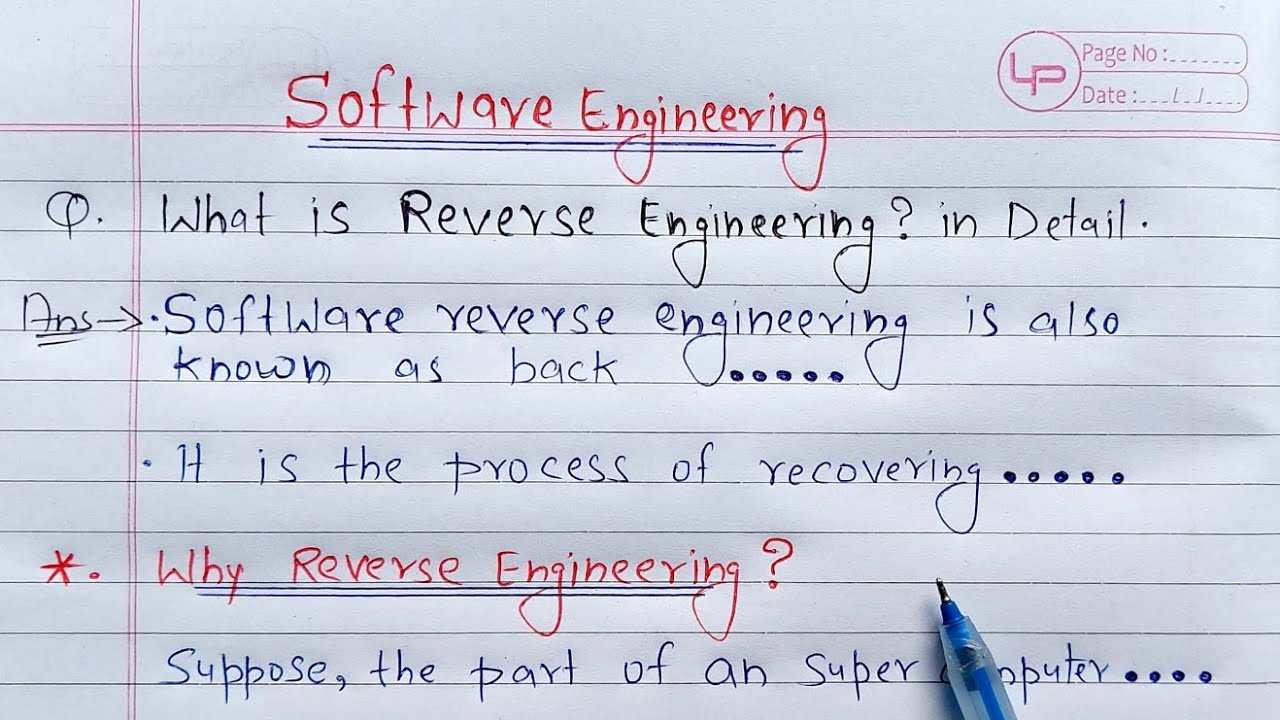 LP
Page No :.......
Date :.../../....
Software Engineering
Q. What is Reverse Engineering? in Detail.
Ans→ • Software reverse engineering is also
known as back .....
• It is the process of recovering.....
*. Why Reverse Engineering?
Suppose, the part of an super computer....